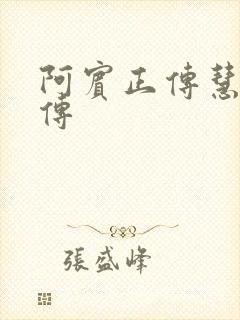 阿賓正傳慧
傳
張盛峰